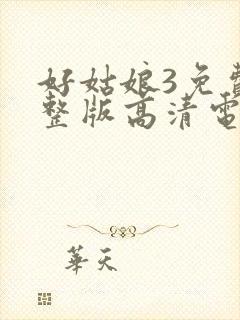 好姑娘3免費
整版高清電
華天